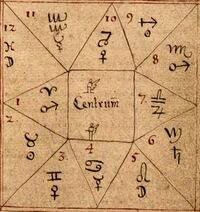 11 10 9
12 8
♓ ♏
☽ ♂
♈ Centrum 7. ♎
1 ♂
2 6
♉ ♑
☉ ♄
3. 4 5
♊ ♋ ♌
☽